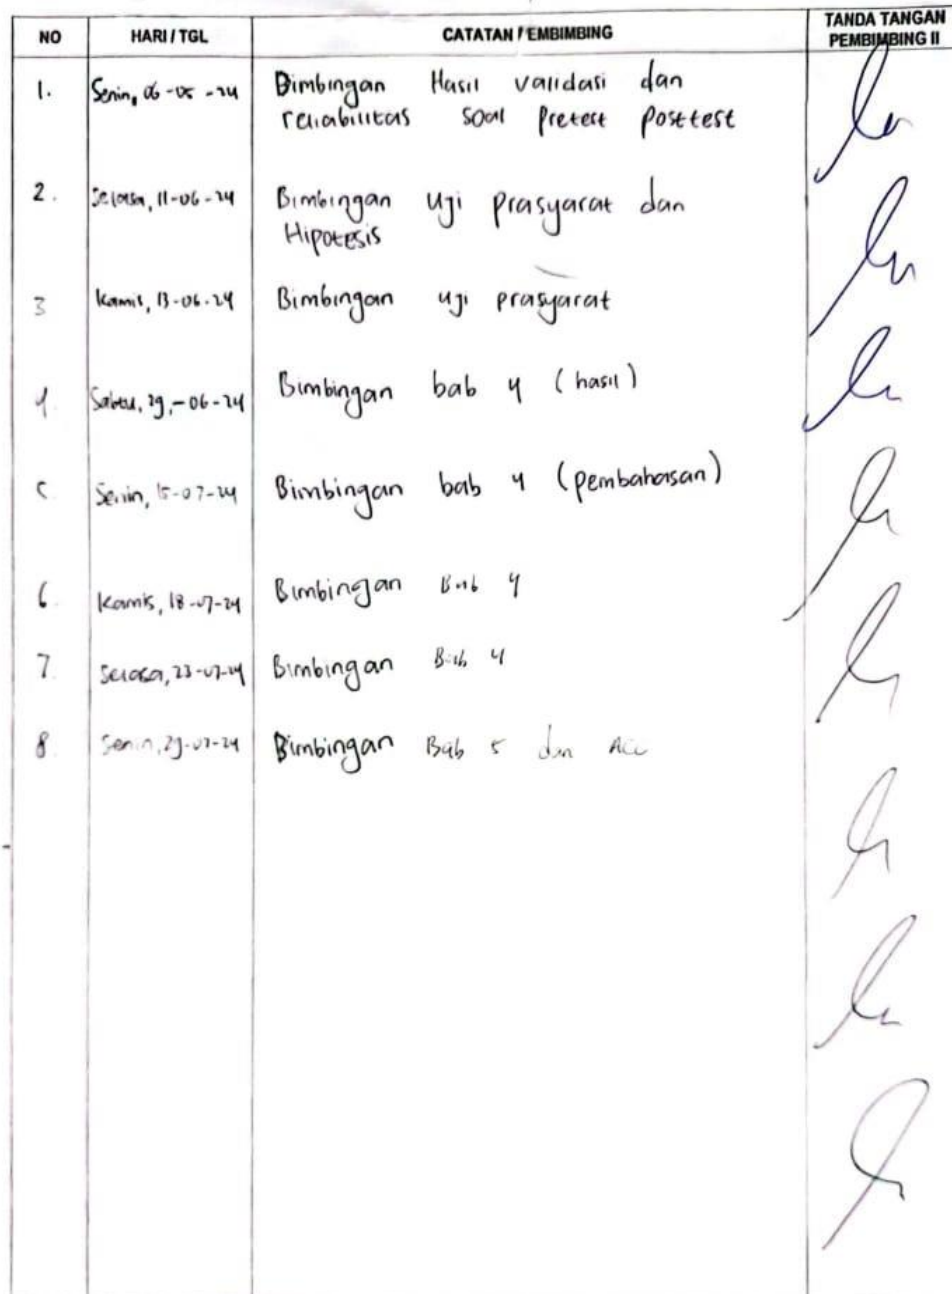 NO HARI / TGL CATATAN PEMBIMBING TANDA TANGAN
PEMBIMBING II
1. Senin, 06-05-24 Bimbingan Hasil validasi dan
reliabilitas soal Pretest Posttest
2. Selasa, 11-06-24 Bimbingan Uji prasyarat dan
Hipotesis
3 Kamis, 13-06-24 Bimbingan uji prasyarat
4. Sabtu, 29,-06-24 Bimbingan bab 4 (hasil)
5. Senin, 15-07-24 Bimbingan bab 4 (pembahasan)
6. Kamis, 18-07-24 Bimbingan Bab 4
7. Selasa, 23-07-24 Bimbingan Bab 4
8. Senin, 29-07-24 Bimbingan Bab 5 dan ACC